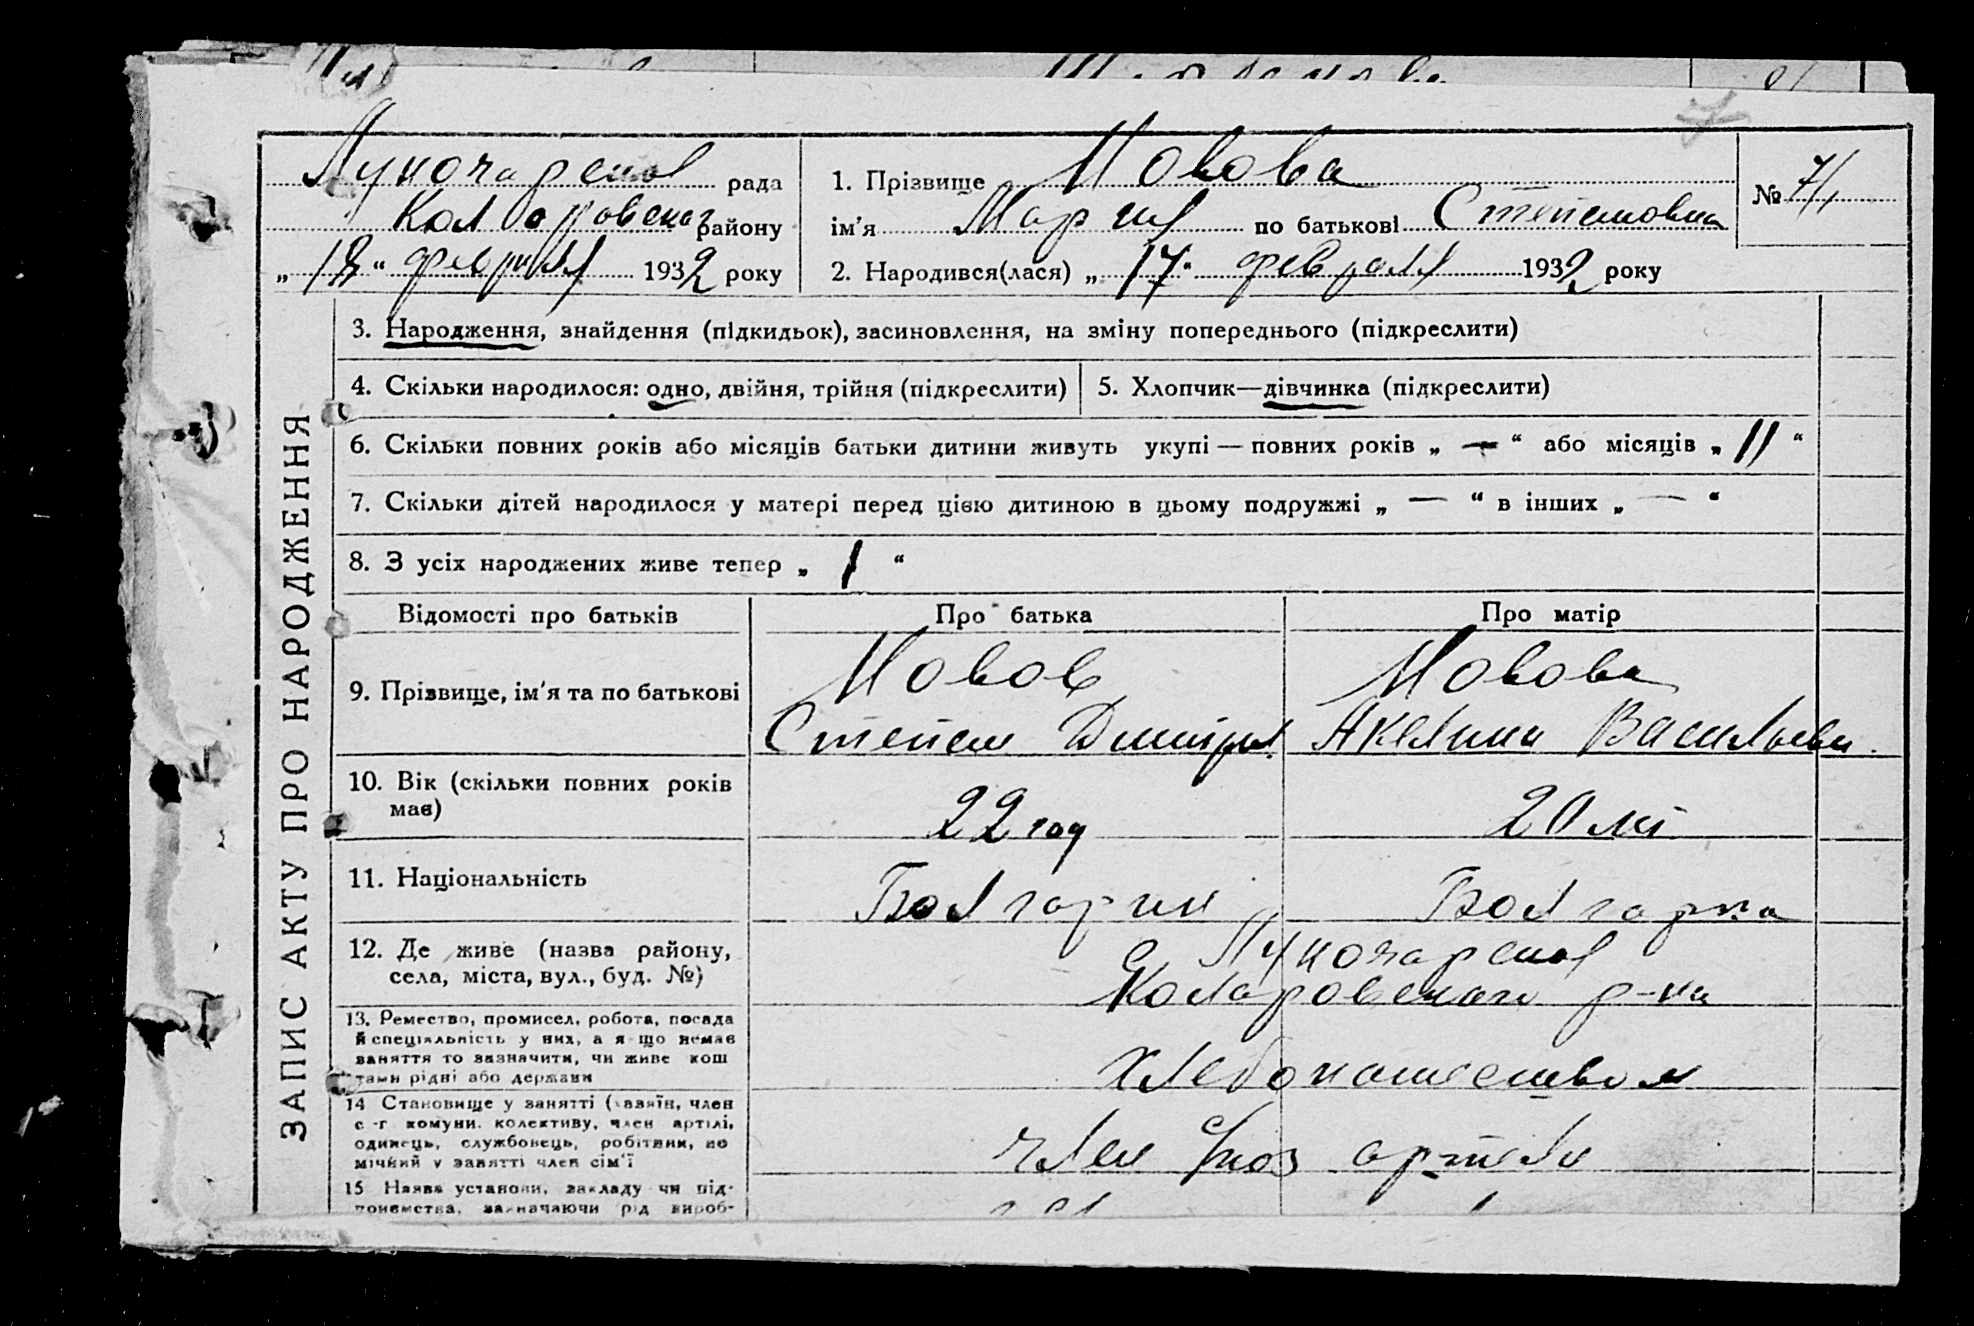 Луночарська рада
Коларовского району
„18“ февраля 1932 року
1. Прізвище Новова
ім'я Мария по батькові Степановна
№ 7/1
2. Народився(лася) „17“ февраля 1932 року
ЗАПИС АКТУ ПРО НАРОДЖЕННЯ
3. Народження, знайдення (підкидьок), засиновлення, на зміну попереднього (підкреслити)
4. Скільки народилося: одно, двійня, трійня (підкреслити)
5. Хлопчик—дівчинка (підкреслити)
6. Скільки повних років або місяців батьки дитини живуть укупі — повних років „ — “ або місяців „ 11 “
7. Скільки дітей народилося у матері перед цією дитиною в цьому подружжі „ — “ в інших „ — “
8. З усіх народжених живе тепер „ 1 “
Відомості про батьків
Про батька
Про матір
9. Прізвище, ім'я та по батькові
Новов
Степан Дмитрия
Новова
Акелина Васильевн.
10. Вік (скільки повних років має)
22 год
20 лет
11. Національність
Болгарин
Болгарка
12. Де живе (назва району,
села, міста, вул., буд. №)
с Луночарска
Коларовского р-на
13. Ремество, промисел, робота, посада
й спеціяльність у них, а якщо немає
заняття то зазначити, чи живе кош
тами рідні або держави
хлебопашеством
14 Становище у занятті (хазяїн, член
с.-г комуни. колективу, член артілі,
одинець, службовець, робітник, по
мічний у занятті член сім'ї
член с/хоз артели
15 Назва установи, закладу чи під-
приємства, зазначаючи рід вироб-